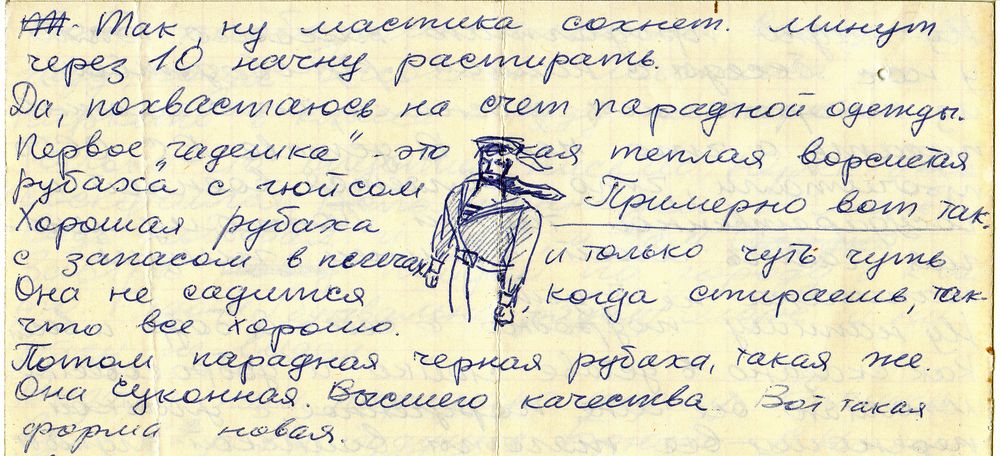 Так, ну мастика сохнет. Минут
через 10 начну растирать.
Да, похвастаюсь на счет парадной одежды.
Первое "гадешка" - это такая теплая ворсистая
рубаха с гюйсом Примерно вот так.
Хорошая рубаха
с запасом в плечах и только чуть чуть
Она не садится, когда стираешь, так-
что все хорошо.
Потом парадная черная рубаха, такая же.
Она суконная. Высшего качества. Вот такая
форма новая.